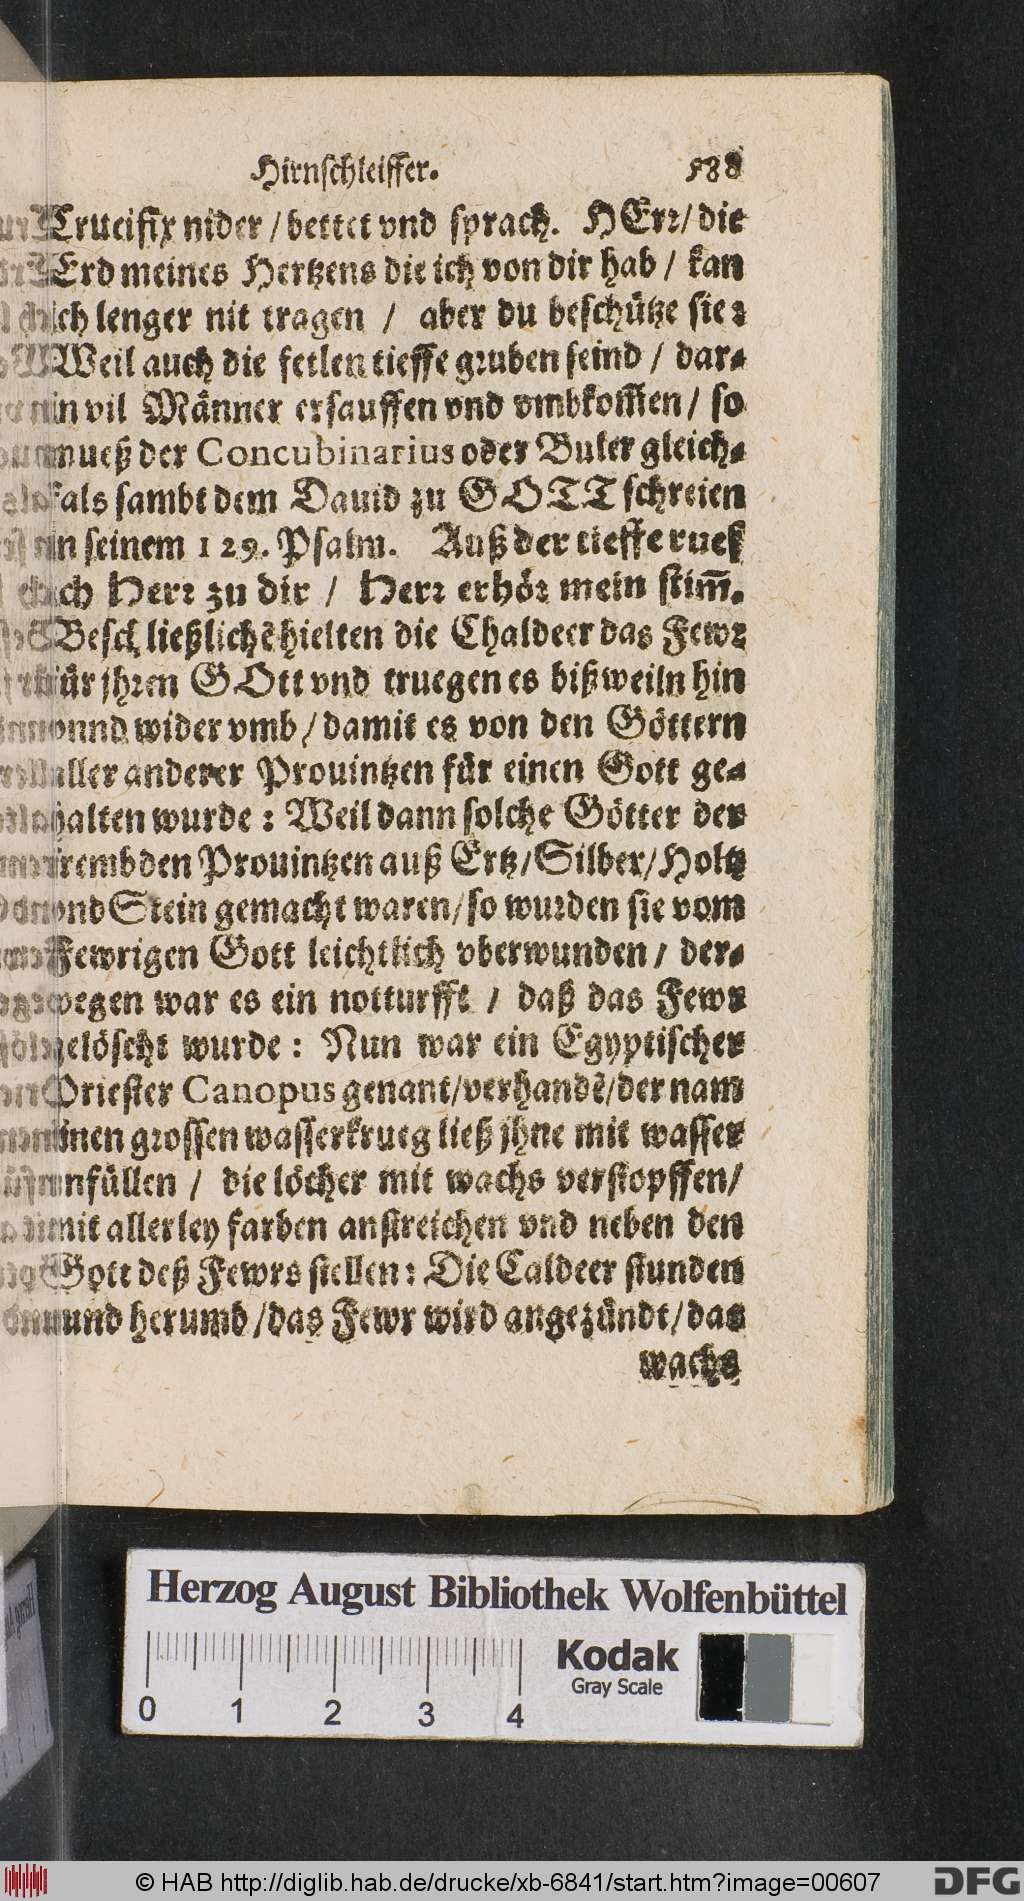 Hirnschleiffer. 588
Crucifix nider / bettet vnd sprach. HErꝛ / die
Erd meines Hertzens die ich von dir hab / kan
ich lenger nit tragen / aber du beschütze sie:
Weil auch die seelen tieffe gruben seind / dar-
in vil Männer ersauffen vnd vmbkom̃en / so
mueß der Concubinarius oder Buler gleich-
fals sambt dem Dauid zu GOTT schreien
in seinem 129. Psalm. Auß der tieffe rueff
ich Herꝛ zu dir / Herꝛ erhöꝛ mein stim̃.
Beschließlichẽ hielten die Chaldeer das Fewꝛ
für jhꝛen GOtt vnd truegen es bißweiln hin
vnnd wider vmb / damit es von den Göttern
aller anderer Prouintzen für einen Gott ge-
halten wurde: Weil dann solche Götter der
frembden Prouintzen auß Ertz / Silber / Holtz
vnd Stein gemacht waren / so wuꝛden sie vom
Fewrigen Gott leichtlich vberwunden / der-
wegen war es ein notturfft / daß das Fewr
gelöscht wurde: Nun war ein Egyptischer
Priester Canopus genant / verhandẽ / der nam
einen gꝛossen wasserkrueg ließ jhne mit wasser
anfüllen / die löcher mit wachs verstopffen /
mit allerley farben anstreichen vnd neben den
Gott deß Fewrs stellen: Die Caldeer stunden
rund herumb / das Fewr wird angezündt / das
wachs
Herzog August Bibliothek Wolfenbüttel
Kodak
Gray Scale
0 1 2 3 4
© HAB http://diglib.hab.de/drucke/xb-6841/start.htm?image=00607
DFG